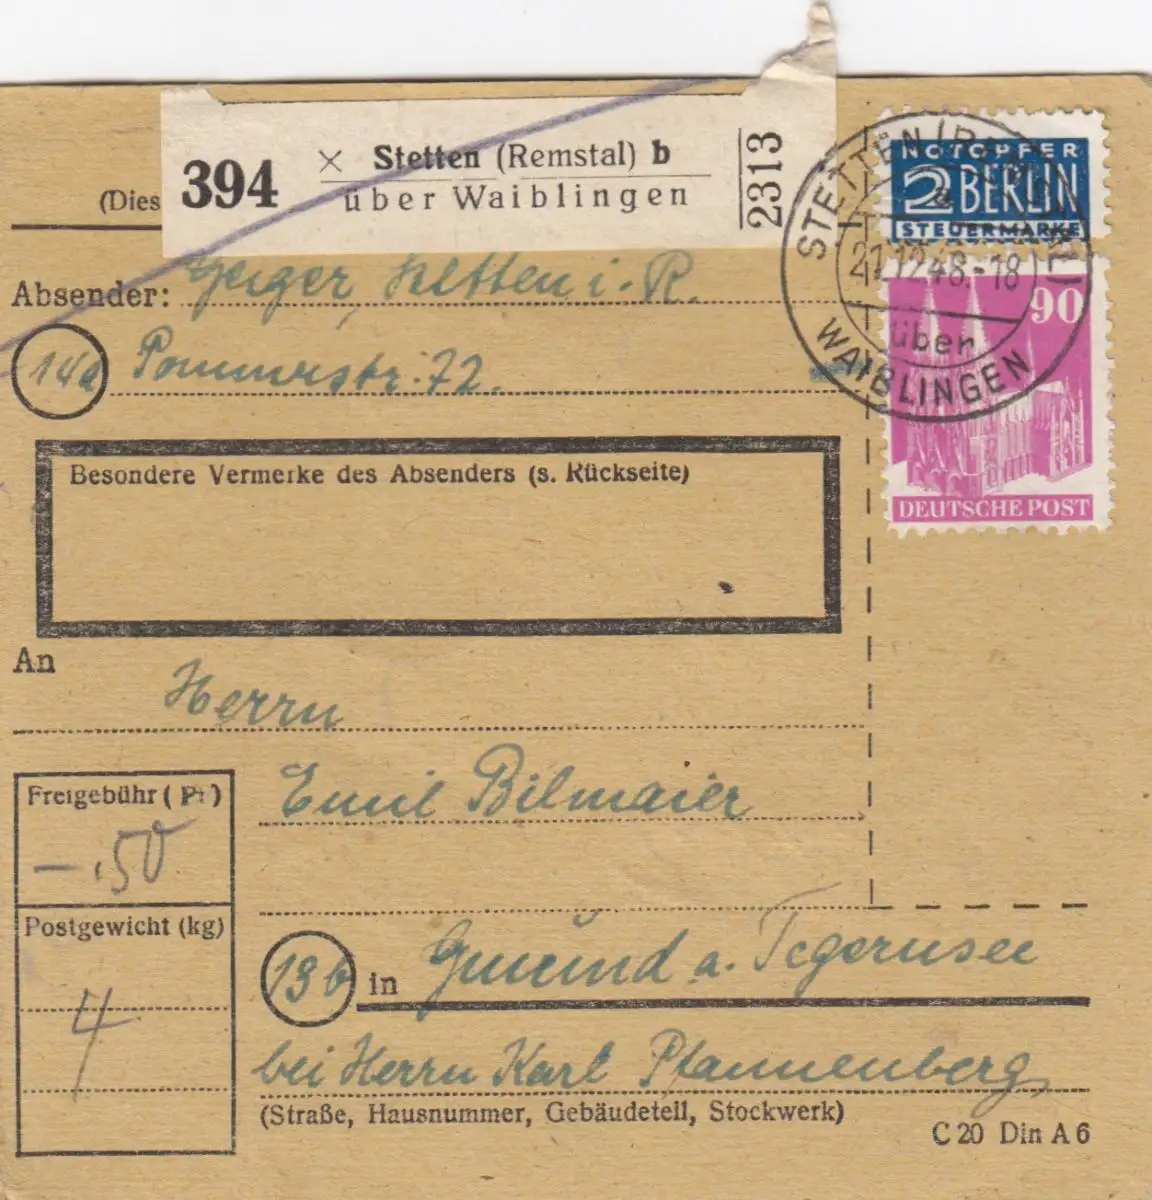 394 × Stetten (Remstal) b
über Waiblingen
2313
(Dies
NOTOPFER
2 BERLIN
STEUERMARKE
STETTEN (REMSTAL)
21.12.48.-18
über
WAIBLINGEN
90
DEUTSCHE POST
Absender: Geiger, Stetten i. R.
14a Pommerstr. 72.
Besondere Vermerke des Absenders (s. Rückseite)
An
Herrn
Emil Bilmaier
Freigebühr (Pf)
-.50
Postgewicht (kg)
4
13b in Gmünd a. Tegernsee
bei Herrn Karl Pfannenberg
(Straße, Hausnummer, Gebäudeteil, Stockwerk)
C 20 Din A 6